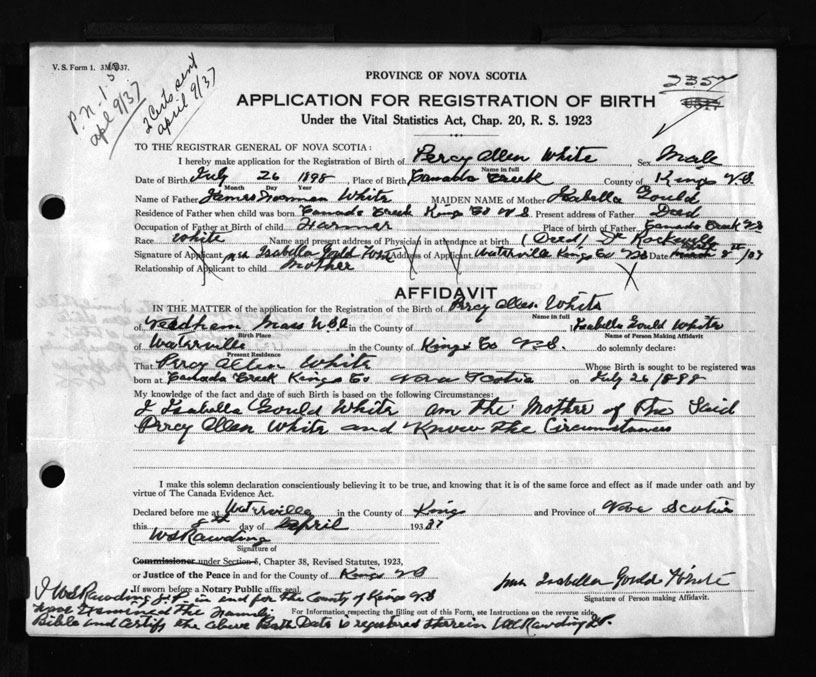 V. S. Form 1.
P.N. 1.50
apl 9/37
2 Certs sent
april 9/37
PROVINCE OF NOVA SCOTIA
2357
APPLICATION FOR REGISTRATION OF BIRTH
Under the Vital Statistics Act, Chap. 20, R. S. 1923
TO THE REGISTRAR GENERAL OF NOVA SCOTIA:
I hereby make application for the Registration of Birth of Percy Allen White Sex Male
Name in full
Date of Birth July 26 1898 Place of Birth Canada Creek County of Kings N.S.
Month Day Year
Name of Father James Norman White MAIDEN NAME of Mother Isabella Gould
Residence of Father when child was born Canada Creek Kings Co N S. Present address of Father Dead
Occupation of Father at Birth of child Farmer Place of birth of Father Canada Creek NS
Race White Name and present address of Physician in attendance at birth (Dead) Dr
Signature of Applicant Mrs Isabella Gould White Address of Applicant Waterville Kings Co NS Date March 8
Relationship of Applicant to child Mother
AFFIDAVIT
IN THE MATTER of the application for the Registration of the Birth of Percy Allen White
Name in full
of Needham Mass U.S.A in the County of I Isabella Gould White
Birth Place Name of Person Making Affidavit
of Waterville in the County of Kings Co N.S. do solemnly declare:
Present Residence
That Percy Allen White Whose Birth is sought to be registered was
born at Canada Creek Kings Co Nova Scotia on July 26/1898
My knowledge of the fact and date of such Birth is based on the following Circumstances:
I Isabella Gould White am the Mother of the Said
Percy Allen White and Know the Circumstances
I make this solemn declaration conscientiously believing it to be true, and knowing that it is of the same force and effect as if made under oath and by
virtue of The Canada Evidence Act.
Declared before me at Waterville in the County of Kings and Province of Nova Scotia
this 8th day of April 1937
WS Rawding
Signature of
Commissioner under Section 5, Chapter 38, Revised Statutes, 1923,
or Justice of the Peace in and for the County of Kings NS
If sworn before a Notary Public affix seal.
Mrs Isabella Gould White
Signature of Person making Affidavit.
I WS Rawding J.P. in and for the County of Kings NS
have Examined the Family
For Information respecting the filling out of this Form, see Instructions on the reverse side.
Bible and Certify the above Birth Date is registered therein WS Rawding J.P.